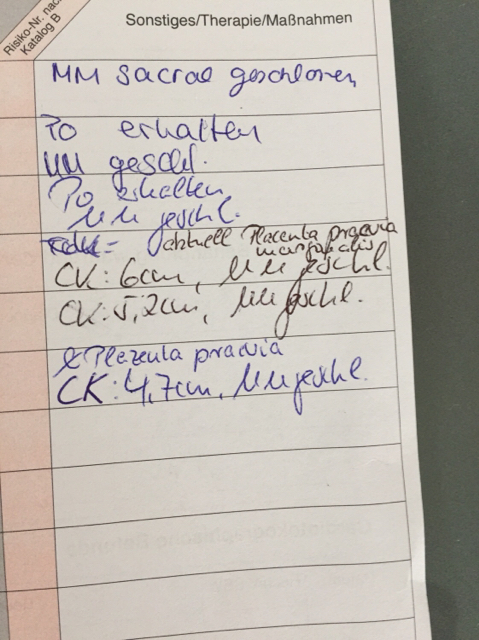 Risiko-Nr. nach
Katalog B
Sonstiges/Therapie/Maßnahmen
MM sacral geschlossen
Po erhalten
MM geschl.
Po erhalten
MM geschl.
aktuell Placenta praevia
marginalis
CK: 6cm, MM geschl.
CK: 5,2cm, MM geschl.
Plazenta praevia
CK: 4,7cm, MM geschl.